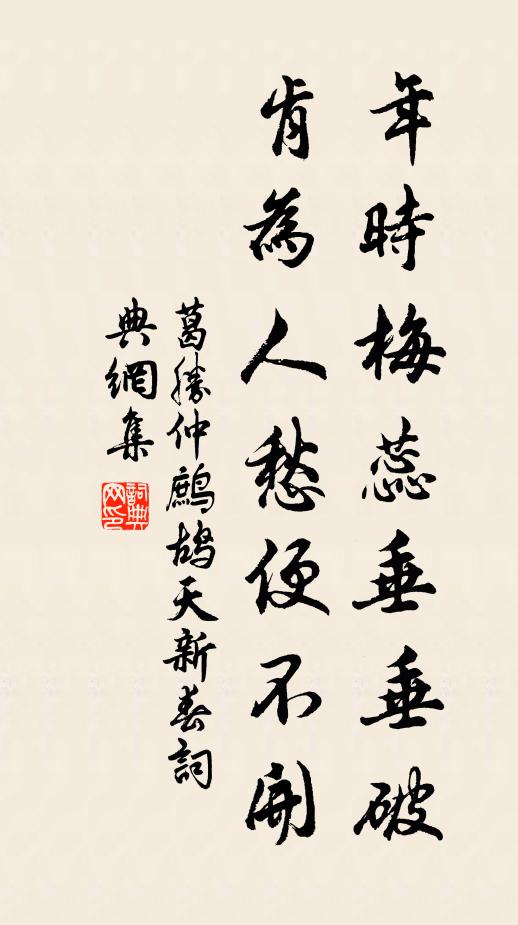 年時梅蕊垂垂破
肯為人愁便不開
葛勝仲鷓鴣天新春詞
典網集
詞典網印